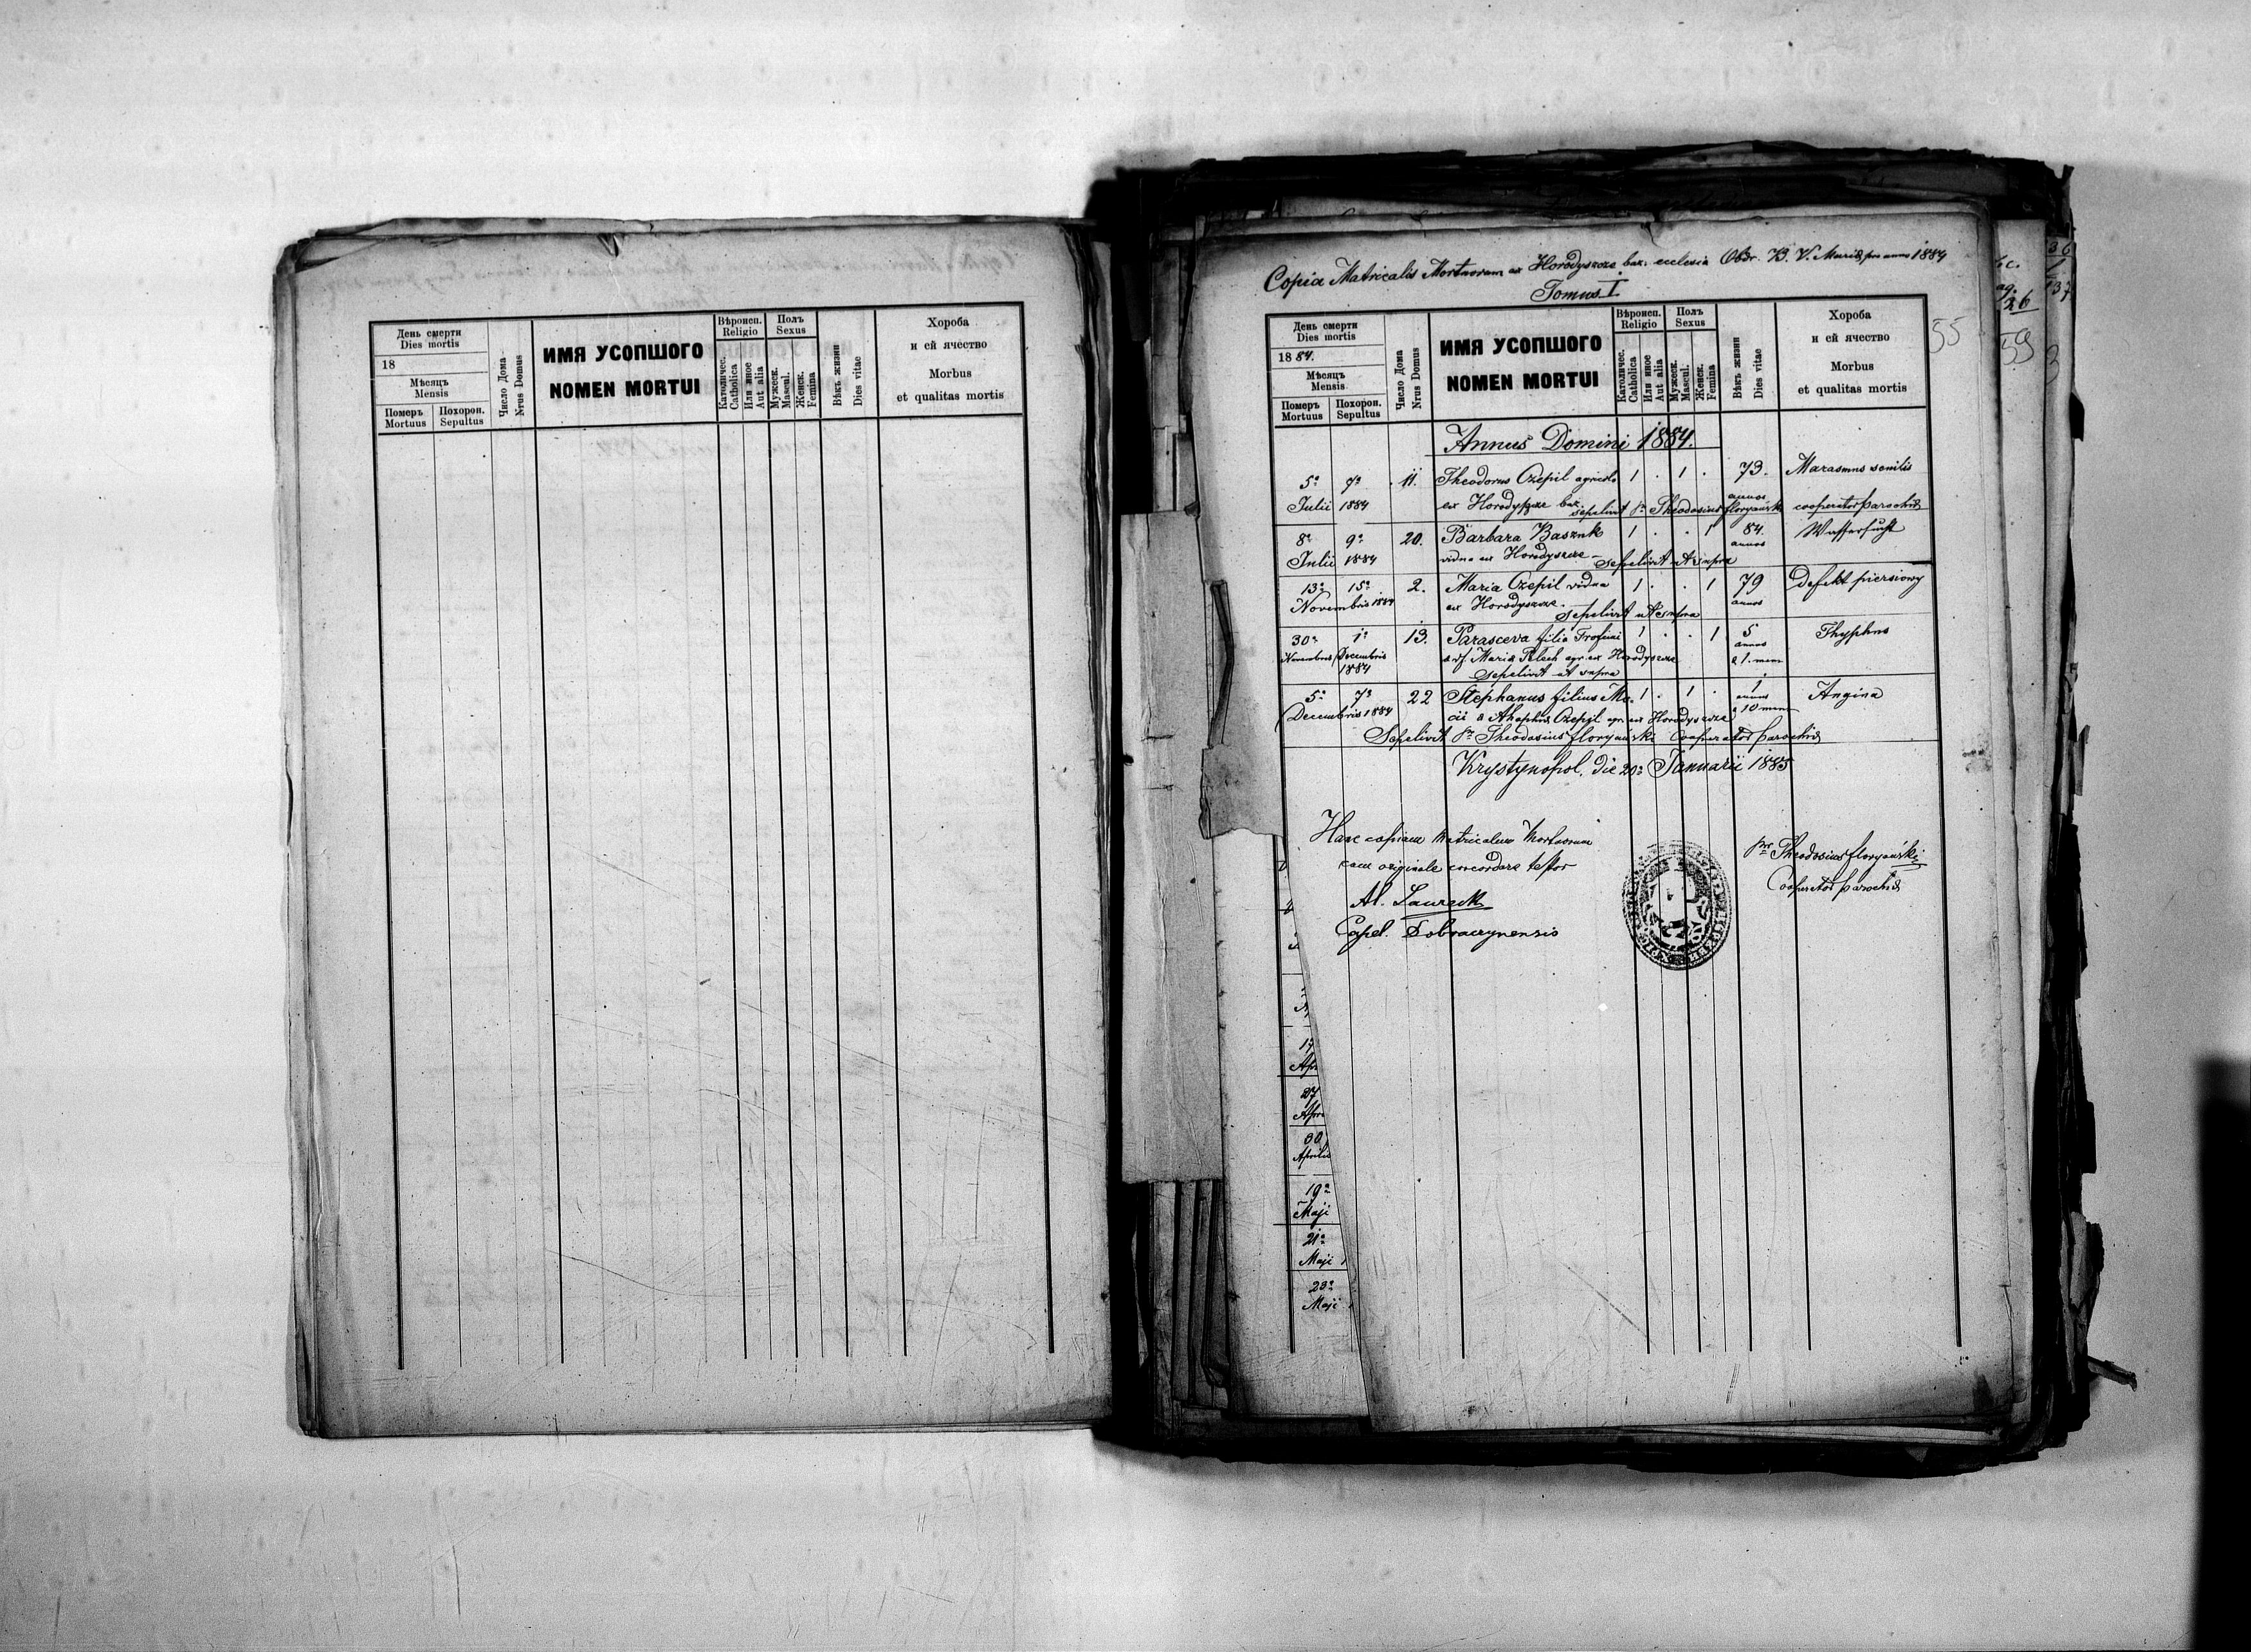 День смерти
Dies mortis
18
Мѣсяцъ
Mensis
Померъ
Mortuus
Похорон.
Sepultus
Число Дома
Nrus Domus
ИМЯ УСОПШОГО
NOMEN MORTUI
Вѣроисп.
Religio
Католичес.
Catholica
Или иное
Aut alia
Полъ
Sexus
Мужеск.
Mascul.
Женск.
Femina
Вѣкъ жизни
Dies vitae
Хороба
и ей ячество
Morbus
et qualitas mortis
Copia Matricalis Mortuorum ex Horodyszcze baz. ecclesia Obdr. B. V. Mariae pro anno 1884
Tomus I
День смерти
Dies mortis
1884.
Мѣсяцъ
Mensis
Померъ
Mortuus
Похорон.
Sepultus
Число Дома
Nrus Domus
ИМЯ УСОПШОГО
NOMEN MORTUI
Вѣроисп.
Religio
Католичес.
Catholica
Или иное
Aut alia
Полъ
Sexus
Мужеск.
Mascul.
Женск.
Femina
Вѣкъ жизни
Dies vitae
Хороба
и ей ячество
Morbus
et qualitas mortis
55
59
26
Annus Domini 1884.
5a 7a 11. Theodorus Czepil agricola 1 . 1 . 73. Marasmus senilis
Julii 1884 ex Horodyszcze baz. annos
sepelivit pr Theodosius Floryański cooperator parochiae
8a 9a 20. Barbara Basznk 1 . . 1 84. Wassersucht
Julii 1884 vidua ex Horodyszcze – sepelivit ut supra annos
13a 15a 2. Maria Czepil vidua 1 . . 1 79 defekt piersiowy
Novembris 1884 ex Horodyszcze. annos
sepelivit ut supra
30a 1a 13. Parasceva filia Trofimi 1 . . 1 5 Thyphus
Novembris Decembris Maria Pelech agr. ex Horodyszcze annos
1884 sepelivit ut supra & 1. mens
5a 7a 22 Stephanus filius Ma- 1 . 1 . 1 Angina
Decembris 1884 Czepil agr. ex Horodyszcze annus & 10 mens
Sepelivit pr Theodosius Floryański Cooperator parochiae
Krystynopol, die 20a Januarii 1885
Hanc copiam Matricalem Mortuorum
cum originale concordare testor
Al. Laureck
Capel. Dobraczynensis
pr Theodosius Floryański
Cooperator parochiae
17
Apr
27
Apri
30
Aprilis
19a
Maji
21a
Maji
23a
Maji